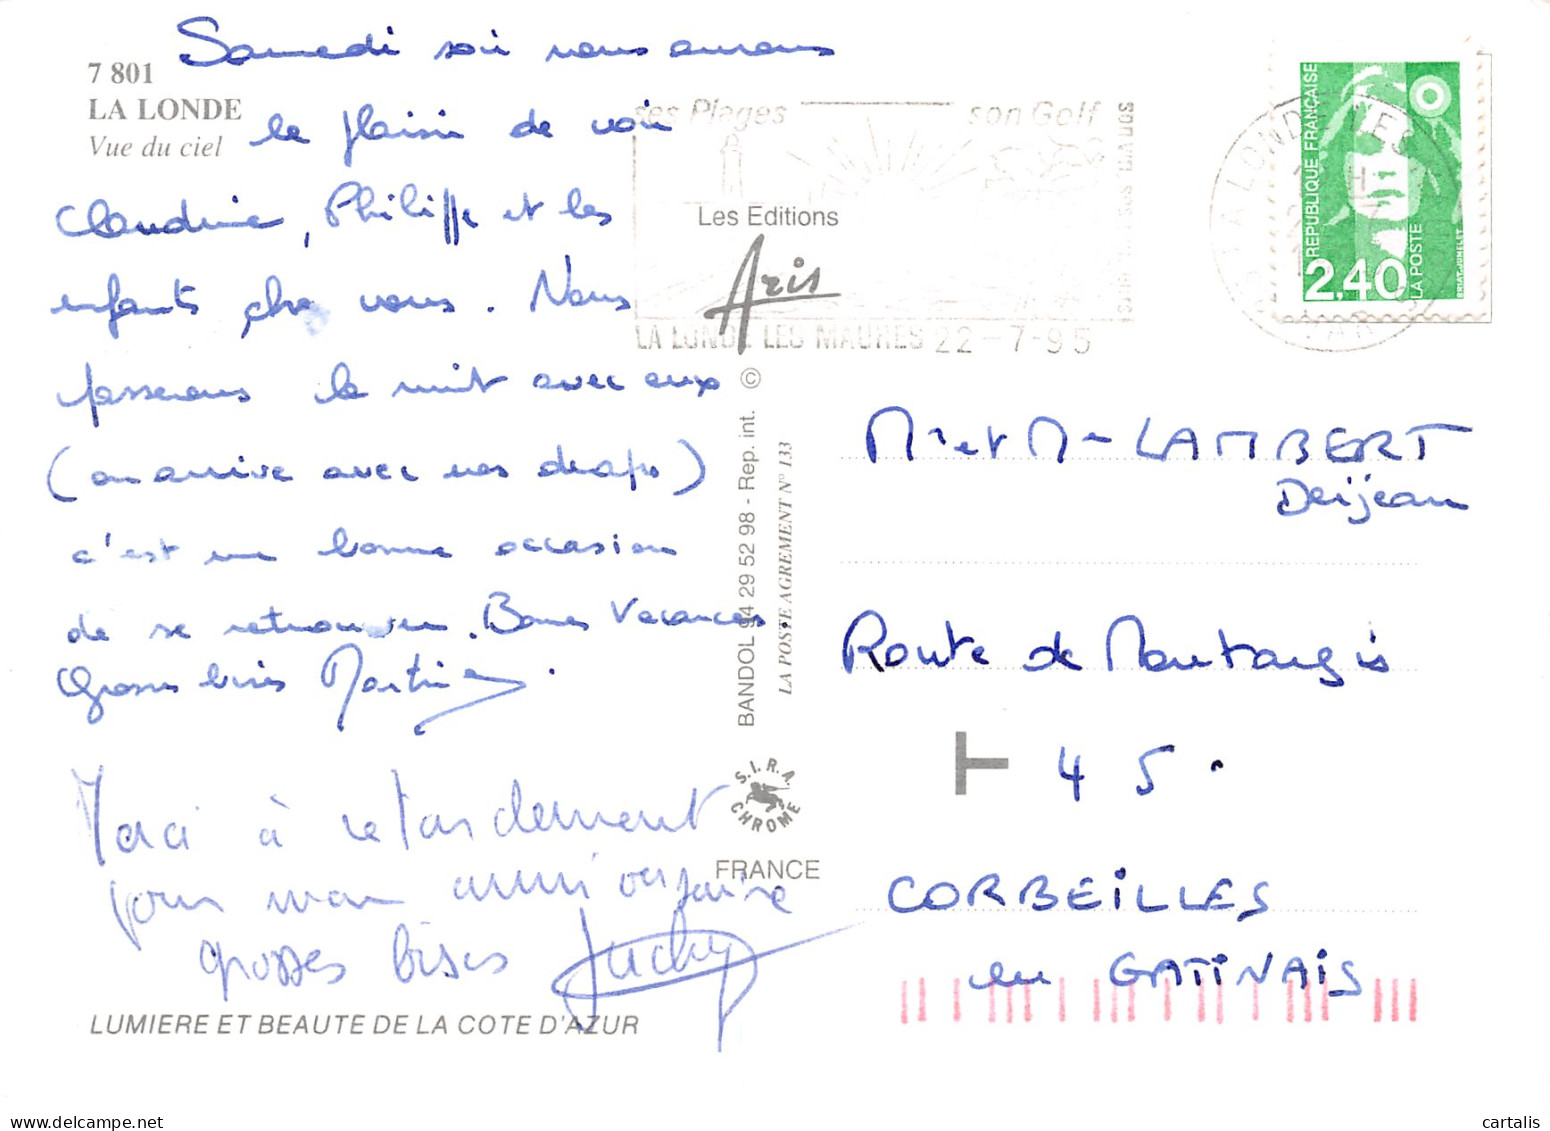 7 801
LA LONDE
Vue du ciel
Samedi soir nous aurons
le plaisir de voir
Claudine, Philippe et les
enfants chez vous. Nous
passerons la nuit avec eux
(on arrive avec nos draps)
c'est une bonne occasion
de se retrouver. Bonnes Vacances.
Grosses bises Martine
Merci à retardement
pour mon anniversaire
grosses bises
LUMIERE ET BEAUTE DE LA COTE D'AZUR
ses Plages son Golf
LA LONDE LES MAURES 22-7-95
Les Editions
Aris
BANDOL 94 29 52 98 - Rep. int. ©
LA POSTE AGREMENT N° 133
S.I.R.A.
CHROME
FRANCE
REPUBLIQUE FRANÇAISE
2,40
LA POSTE
Mr et Mme LAMBERT
Dejean
Route de Montargis
T 45.
CORBEILLES
en GATINAIS
cartalis.com